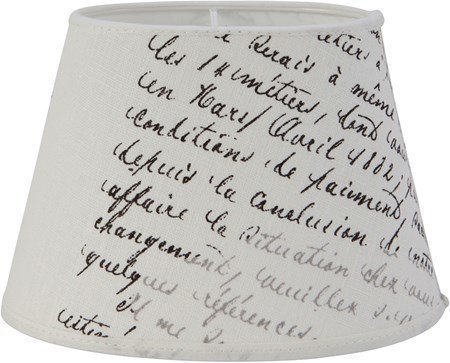 Serais à même
les 14 métiers, dont
en Mars/Avril 1882,
conditions de paiement,
depuis la conclusion de
affaire la situation chez
changement, veuillez
quelques références.
Il me s.